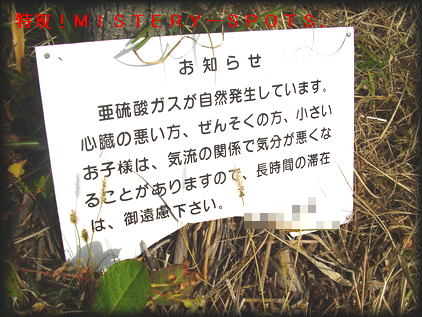 特攻！ＭＩＳＴＥＲｙーＳＰＯＴＳ
お知らせ
亜硫酸ガスが自然発生しています。
心臓の悪い方、ぜんそくの方、小さい
お子様は、気流の関係で気分が悪くな
ることがありますので、長時間の滞在
は、御遠慮下さい。